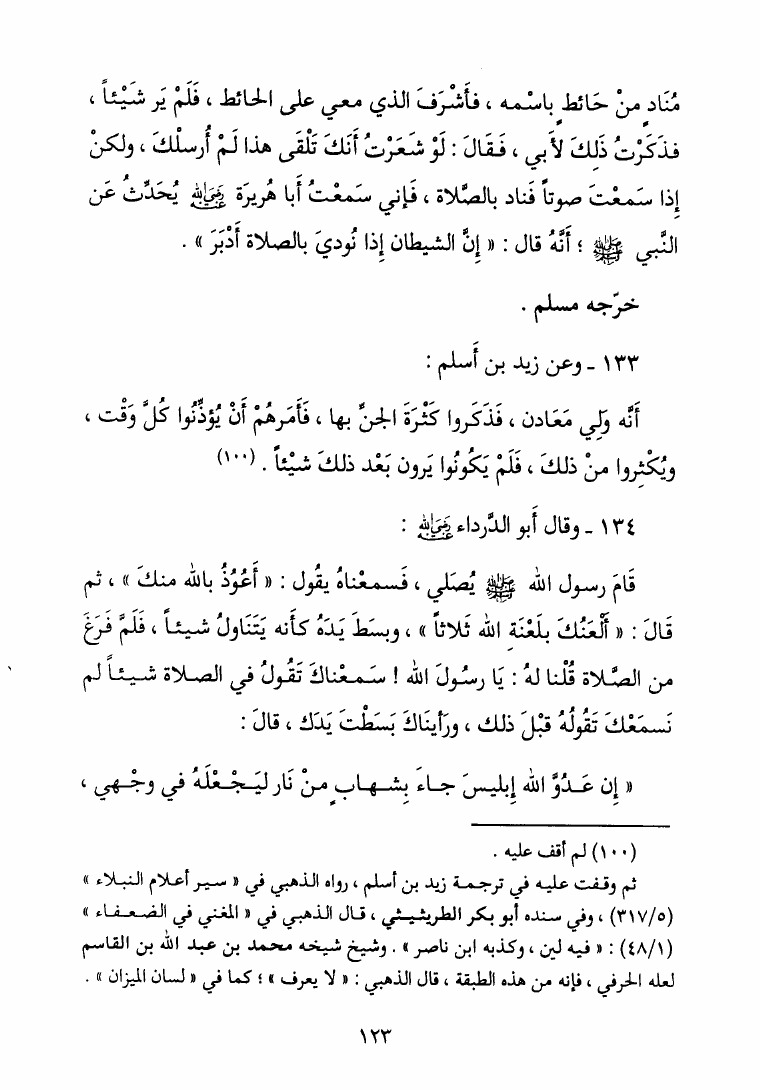 مُنَادٍ مِنْ حَائطٍ بِاسْمه ، فأَشْرَفَ الذي معي على الحائط ، فَلَمْ يَر شَيْئاً ،
فذكَرْتُ ذَلِكَ لأبي ، فَقَالَ : لَوْ شَعَرْتُ أَنكَ تَلْقَى هذا لَمْ أُرسلْكَ ، ولكنْ
إذا سَمعْتَ صوتاً فَناد بالصَّلاة ، فَإني سَمعْتُ أَبا هُريرَة رَضِيَ اللهُ عَنْهُ يُحَدِّثُ عَن
النَّبي ﷺ ؛ أَنَّهُ قال : « إنَّ الشيطان إذا نُوديَ بالصلاة أَدْبَرَ » .
خرّجه مسلم .
١٣٣ ـ وعن زيد بن أَسلم :
أَنَّه وَلي مَعَادن ، فَذكَروا كَثْرَةَ الجنِّ بها ، فَأَمَرهُمْ أَنْ يُؤذِّنُوا كُلَّ وَقْت ،
ويُكْثِروا منْ ذلكَ ، فَلَمْ يَكُونُوا يَرون بَعْد ذلكَ شيْئاً . (١٠٠)
١٣٤ ـ وقال أَبو الدَّرداء رَضِيَ اللهُ عَنْهُ :
قَامَ رسول الله ﷺ يُصَلي ، فَسمعْناهُ يقُول : « أَعُوْذُ بالله منكَ » ، ثم
قَالَ : « أَلْعَنُكَ بلَعْنَةِ الله ثَلاثاً » ، وبسَطَ يَدَهُ كأنه يَتَناولُ شيئاً ، فَلَمَّ فَرَغَ
من الصَّلاة قُلْنا لهُ : يَا رسُولَ الله ! سَمعْناكَ تَقُولُ في الصلاة شيئاً لم
نَسمَعْكَ تَقُولُهُ قبْلَ ذلك ، ورَأيناكَ بَسَطْتَ يَدَك ، قالَ :
« إن عَدُوَّ الله إبليسَ جاءَ بِشهابٍ منْ نَار ليَجْعْلَهُ في وجْهي ،
(١٠٠) لم أقف عليه .
ثم وقفت عليه في ترجمة زيد بن أسلم ، رواه الذهبي في « سير أعلام النبلاء »
(٣١٧/٥) ، وفي سنده أبو بكر الطريثيثي ، قال الذهبي في « المغني في الضعفاء »
(٤٨/١) : « فيه لين ، وكذبه ابن ناصر » . وشيخ شيخه محمد بن عبد الله بن القاسم
لعله الحرفي ، فإنه من هذه الطبقة ، قال الذهبي : « لا يعرف » ؛ كما في « لسان الميزان » .
١٢٣